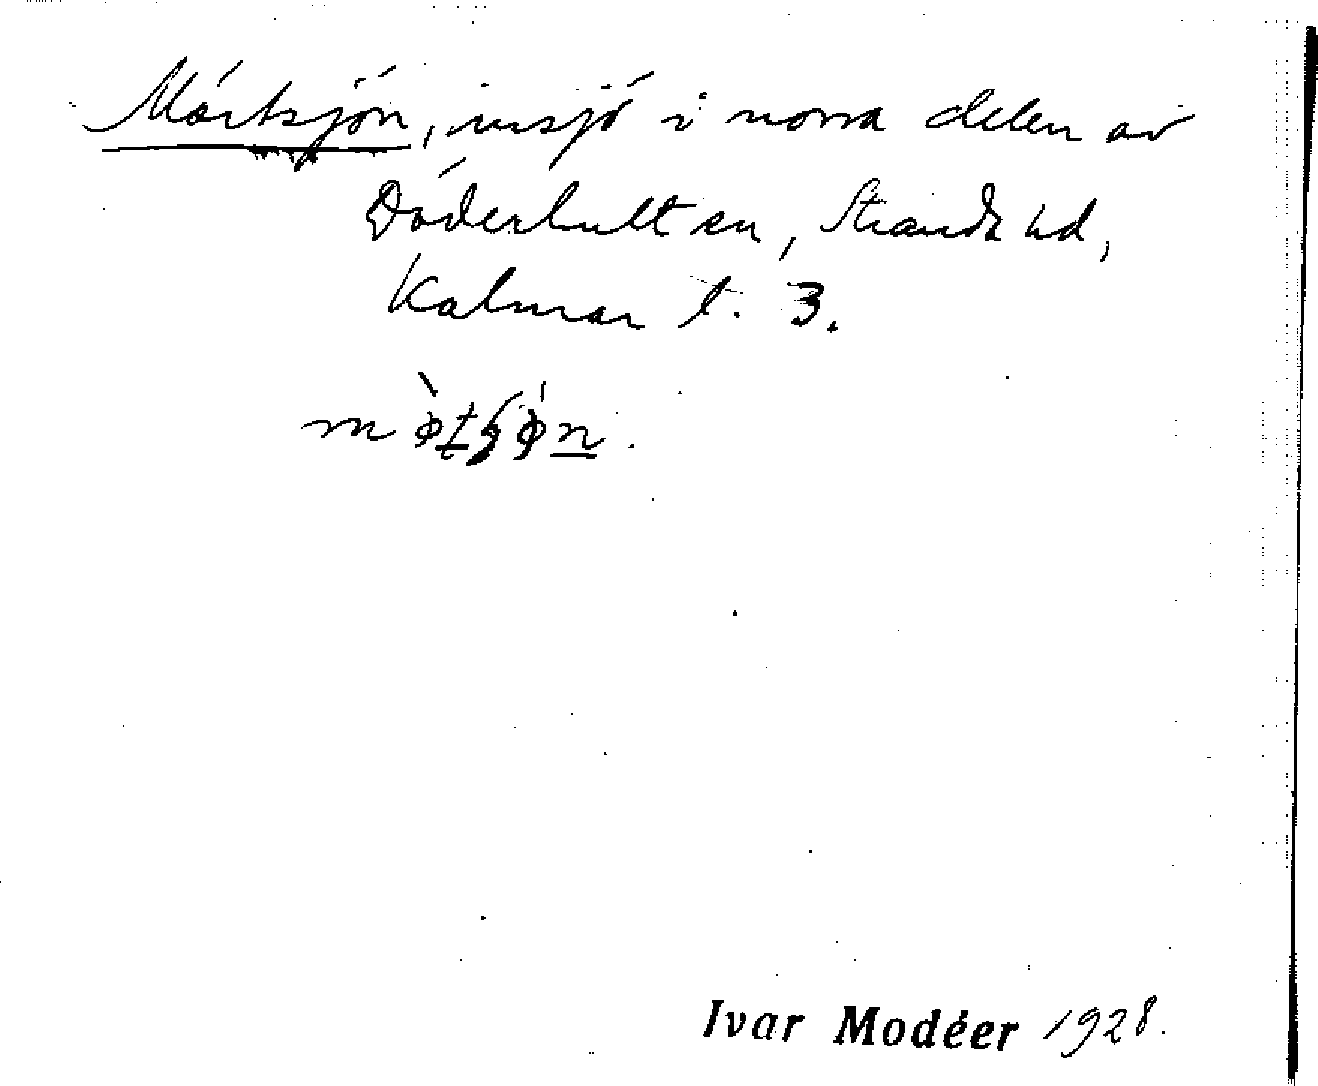 Mörtsjön, insjö i norra delen av
Döderhultsn, Stranda hd,
Kalmar l. 3.
Ivar Modéer 1928.